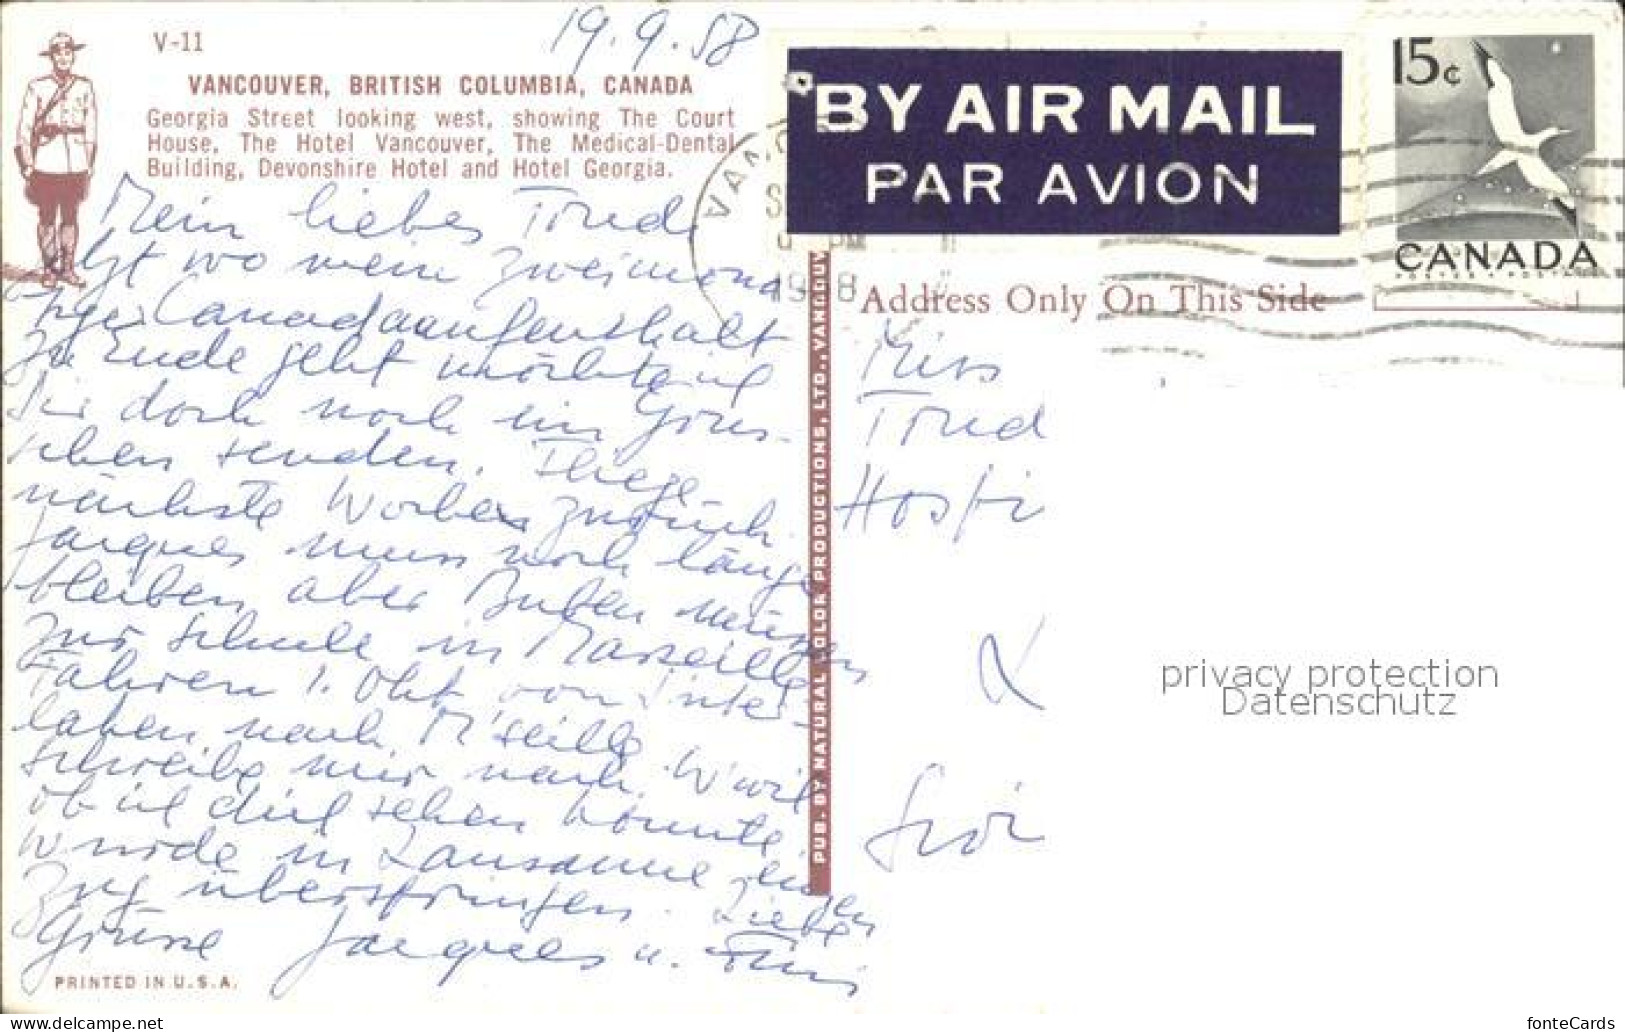 19.9.58
V-11
VANCOUVER, BRITISH COLUMBIA, CANADA
Georgia Street looking west, showing The Court
House, The Hotel Vancouver, The Medical-Dental
Building, Devonshire Hotel and Hotel Georgia.
Mein liebes Trud
jetzt wo mein zweimona
tiger Canadaaufenthalt
zu Ende geht möchte ich
Dir doch noch ein Grüss-
chen senden. Fliege
nächste Woche zurück.
Jacques muss noch länger
bleiben aber Buben müssen
zur Schule in Marseille
Fahren 1. Okt von Inter-
laken nach M'seille
schreibe mir nach W'wil
ob ich dich sehen könnte
würde in Lausanne einen
Zug überspringen. Liebe
Grüsse Jacques u.
PRINTED IN U.S.A.
PUB. BY NATURAL COLOR PRODUCTIONS, LTD., VANCOUV
BY AIR MAIL
PAR AVION
VAN
PM
1958
15c
CANADA
Address Only On This Side
Miss
Trud
privacy protection
Datenschutz
fonteCards
https://www.delcampe.net